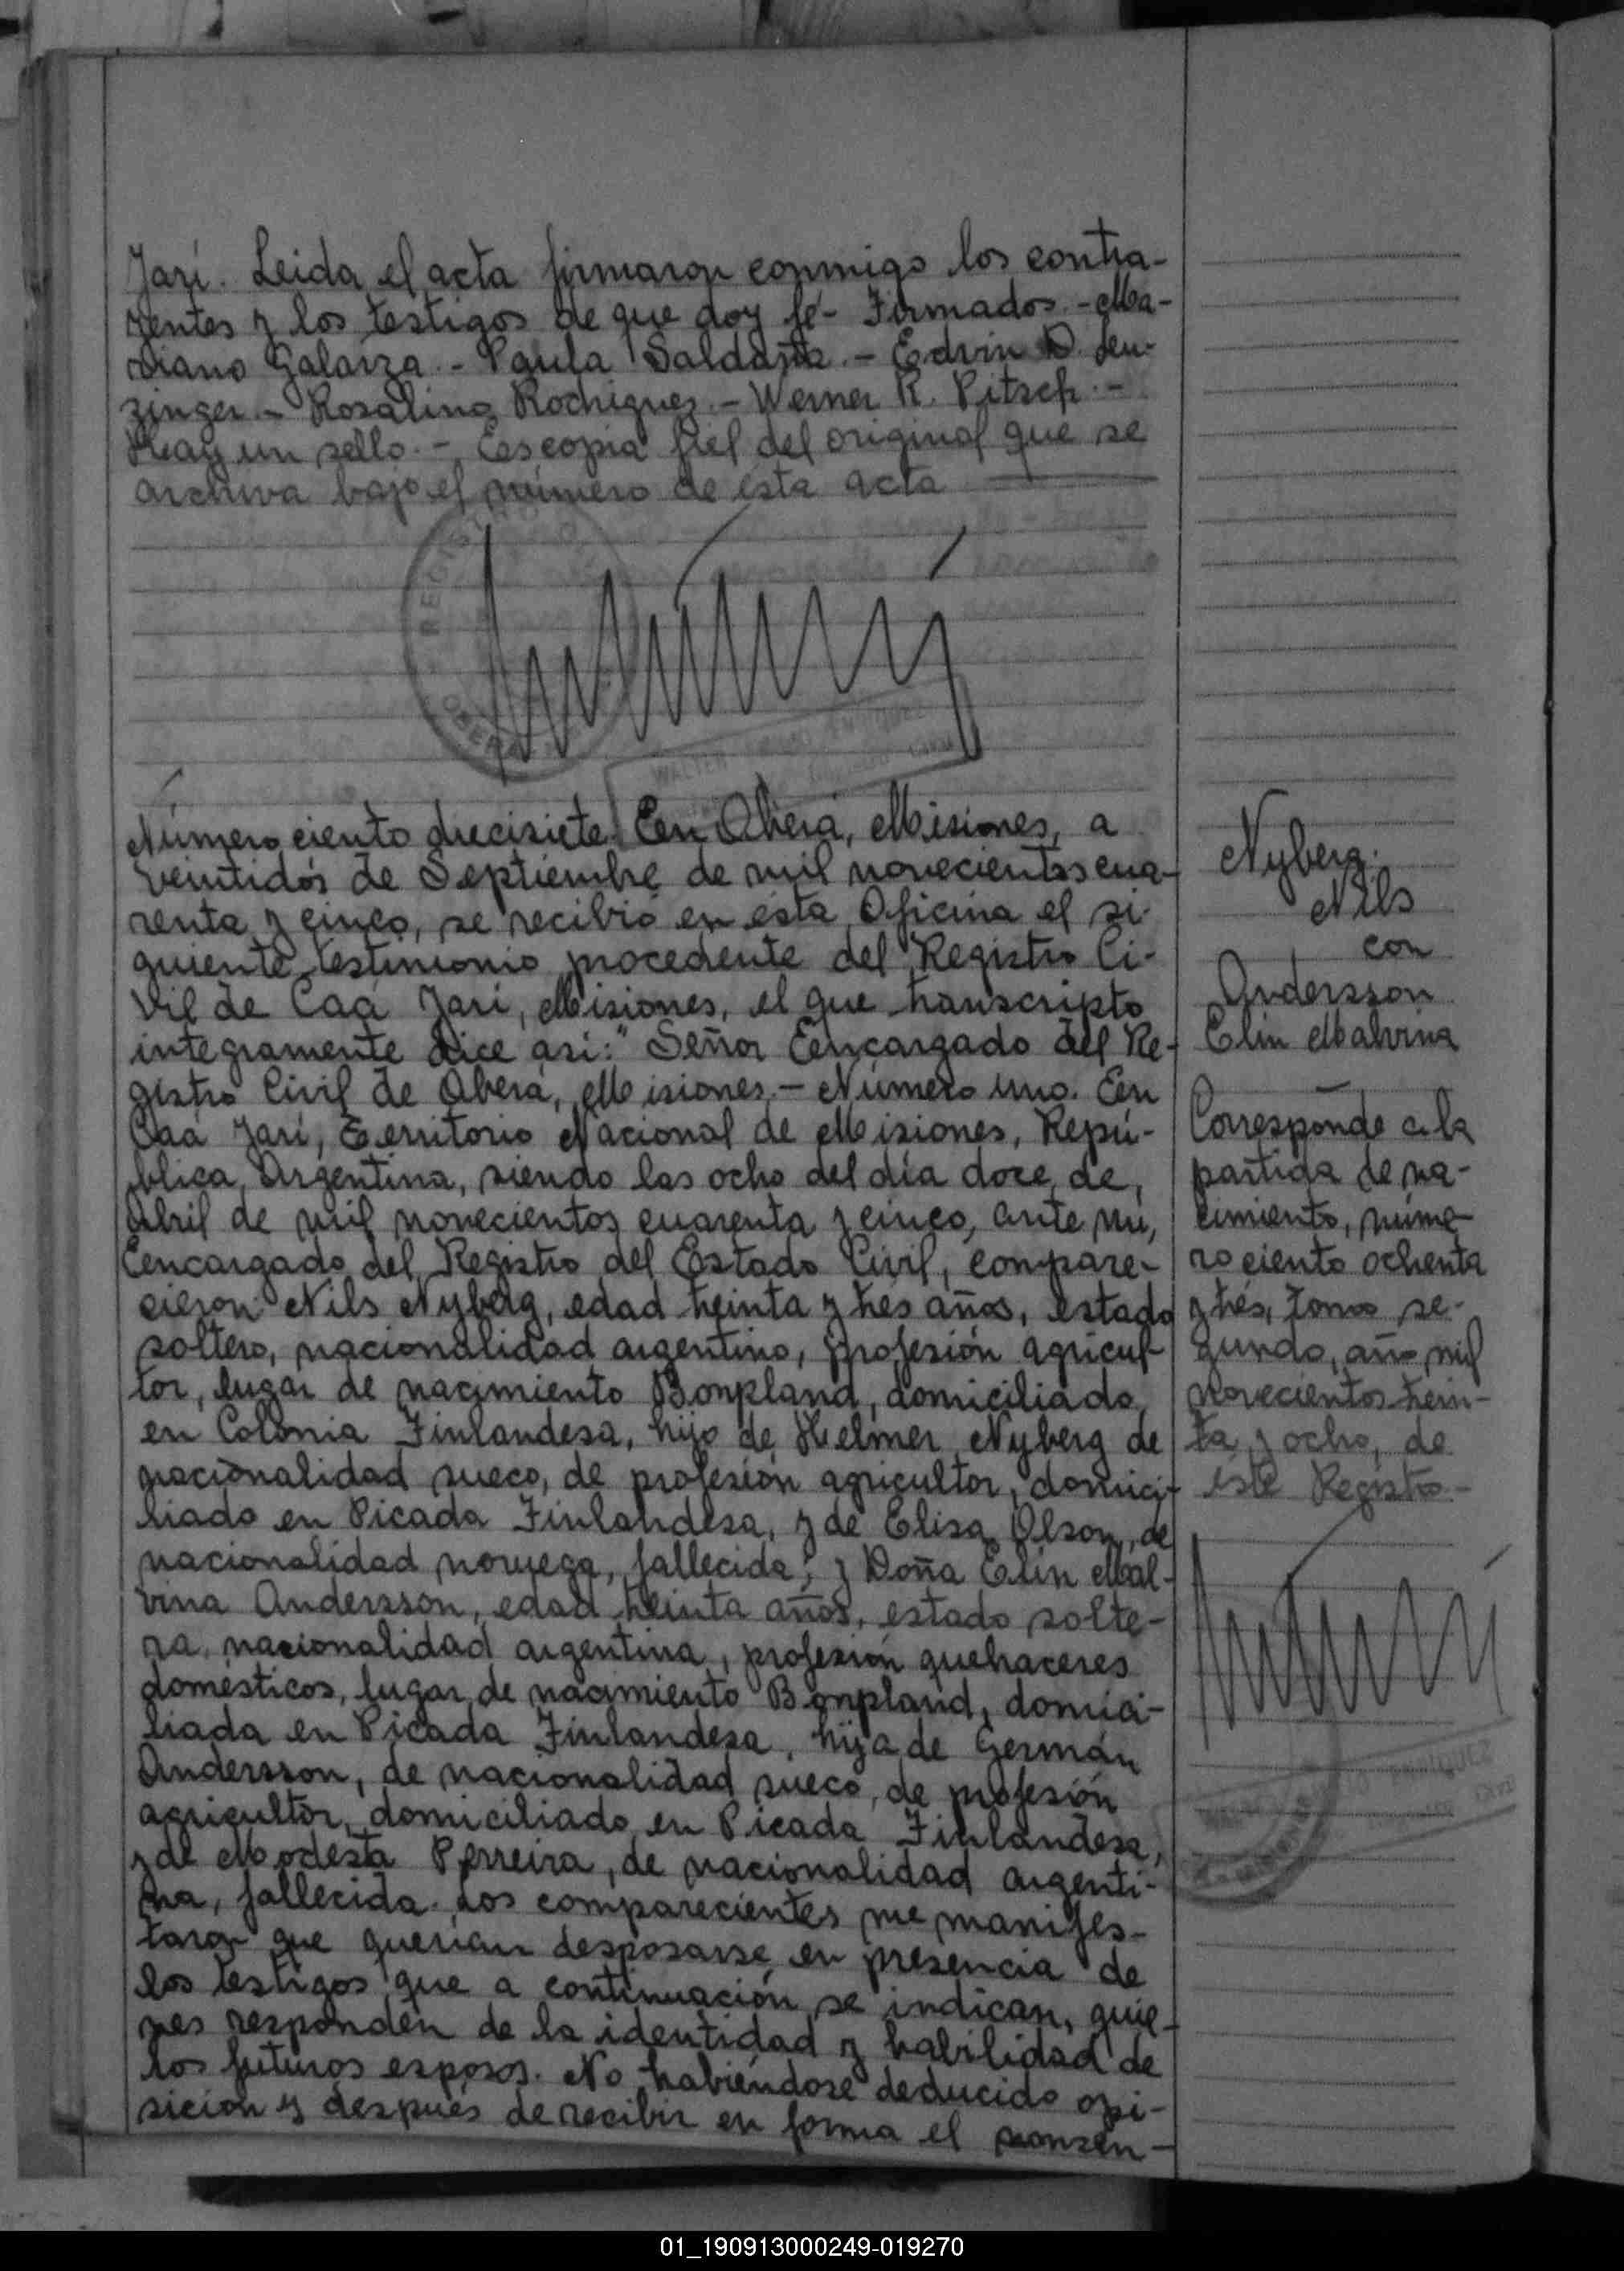 Yarí. Leida el acta firmaron conmigo los contra-
yentes y los testigos de que doy fé- Firmados.- Ma-
riano Galarza.- Paula Saldaña.- Edvin D. Leu-
zinger.- Rosalino Rodriguez.- Werner R. Pitsch.-
Hay un sello.- Es copia fiel del original que se
archiva bajo el número de ésta acta
REGISTRO
OBERA
WALTER ENRIQUEZ
Número ciento diecisiete. En Oberá, Misiones, a
veintidós de Septiembre de mil novecientos cua-
renta y cinco, se recibió en ésta Oficina el si-
guiente testimonio procedente del Registro Ci-
vil de Caá Yarí, Misiones, el que transcripto
integramente dice así:" Señor Encargado del Re-
gistro Civil de Oberá, Misiones.- Número uno. En
Caá Yarí, Territorio Nacional de Misiones, Repú-
blica Argentina, siendo las ocho del día doce de
Abril de mil novecientos cuarenta y cinco, ante mí,
Encargado del Registro del Estado Civil, compare-
cieron: Nils Nyberg, edad treinta y trés años, estado
soltero, nacionalidad argentino, profesión agricul-
tor, lugar de nacimiento Bonpland, domiciliado
en Colonia Finlandesa, hijo de Helmer Nyberg de
nacionalidad sueco, de profesión agricultor, domici-
liado en Picada Finlandesa, y de Elisa Olson, de
nacionalidad noruega, fallecida; y Doña Elin Mal-
vina Andersson, edad treinta años, estado solte-
ra, nacionalidad argentina, profesión quehaceres
domésticos, lugar de nacimiento Bonpland, domici-
liada en Picada Finlandesa, hija de Germán
Andersson, de nacionalidad sueco, de profesión
agricultor, domiciliado en Picada Finlandesa,
y de Modesta Perreira, de nacionalidad argenti-
na, fallecida. Los comparecientes me manifes-
taron que querían desposarse en presencia de
los testigos que a continuación se indican, quie-
nes responden de la identidad y habilidad de
los futuros esposos. No habiéndose deducido opi-
sición y después de recibir en forma el consen-
Nyberg.
Nils
con
Andersson
Elin Malvina
Corresponde a la
partida de na-
cimiento, núme-
ro ciento ochenta
y trés, tomo se-
gundo, año mil
novecientos trein-
ta y ocho, de
éste Registro.-
01_190913000249-019270